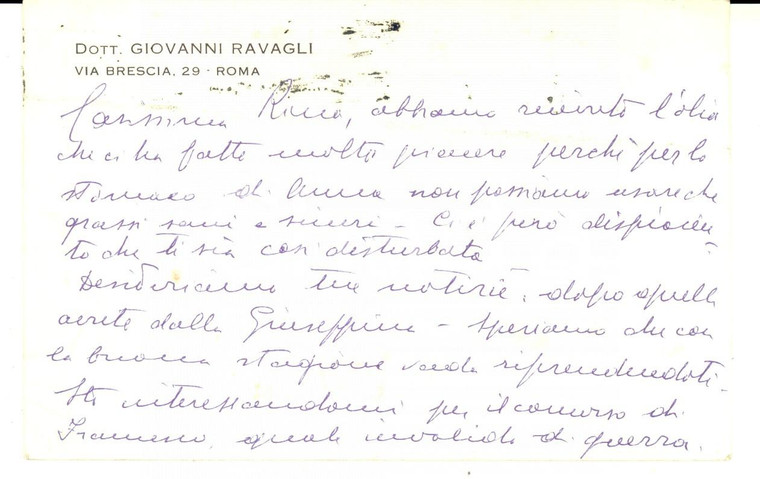 DOTT. GIOVANNI RAVAGLI
VIA BRESCIA, 29 - ROMA
Carissima Rina, abbiamo ricevuto l'olio
che ci ha fatto molto piacere perchè per lo
stomaco di Anna non possiamo usare che
grassi sani e sinceri - Ci è però dispiaciu-
to che ti sia così disturbata
Desideriamo tue notizie, dopo quelle
avute dalla Giuseppina - Speriamo che con
la buona stagione vada riprendendoti -
Sto interessandomi per il concorso di
Francesco, quale invalido di guerra.